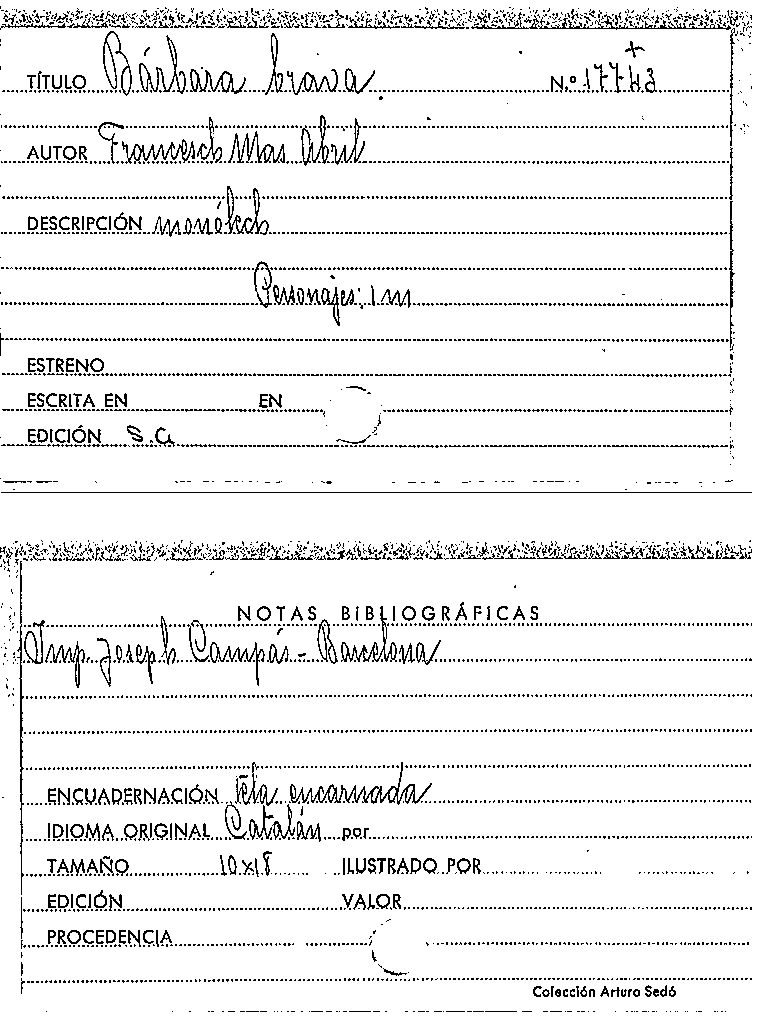 +
TÍTULO Bárbara brava. N.º 17743
AUTOR Francesch Mas Abril
DESCRIPCIÓN monólech
Personajes: 1 m
ESTRENO
ESCRITA EN EN
EDICIÓN S.a
NOTAS BIBLIOGRÁFICAS
Imp. Joseph Campás - Barcelona
ENCUADERNACIÓN tela encarnada
IDIOMA ORIGINAL Catalán por
TAMAÑO 10x18 ILUSTRADO POR
EDICIÓN VALOR
PROCEDENCIA
Colección Arturo Sedó